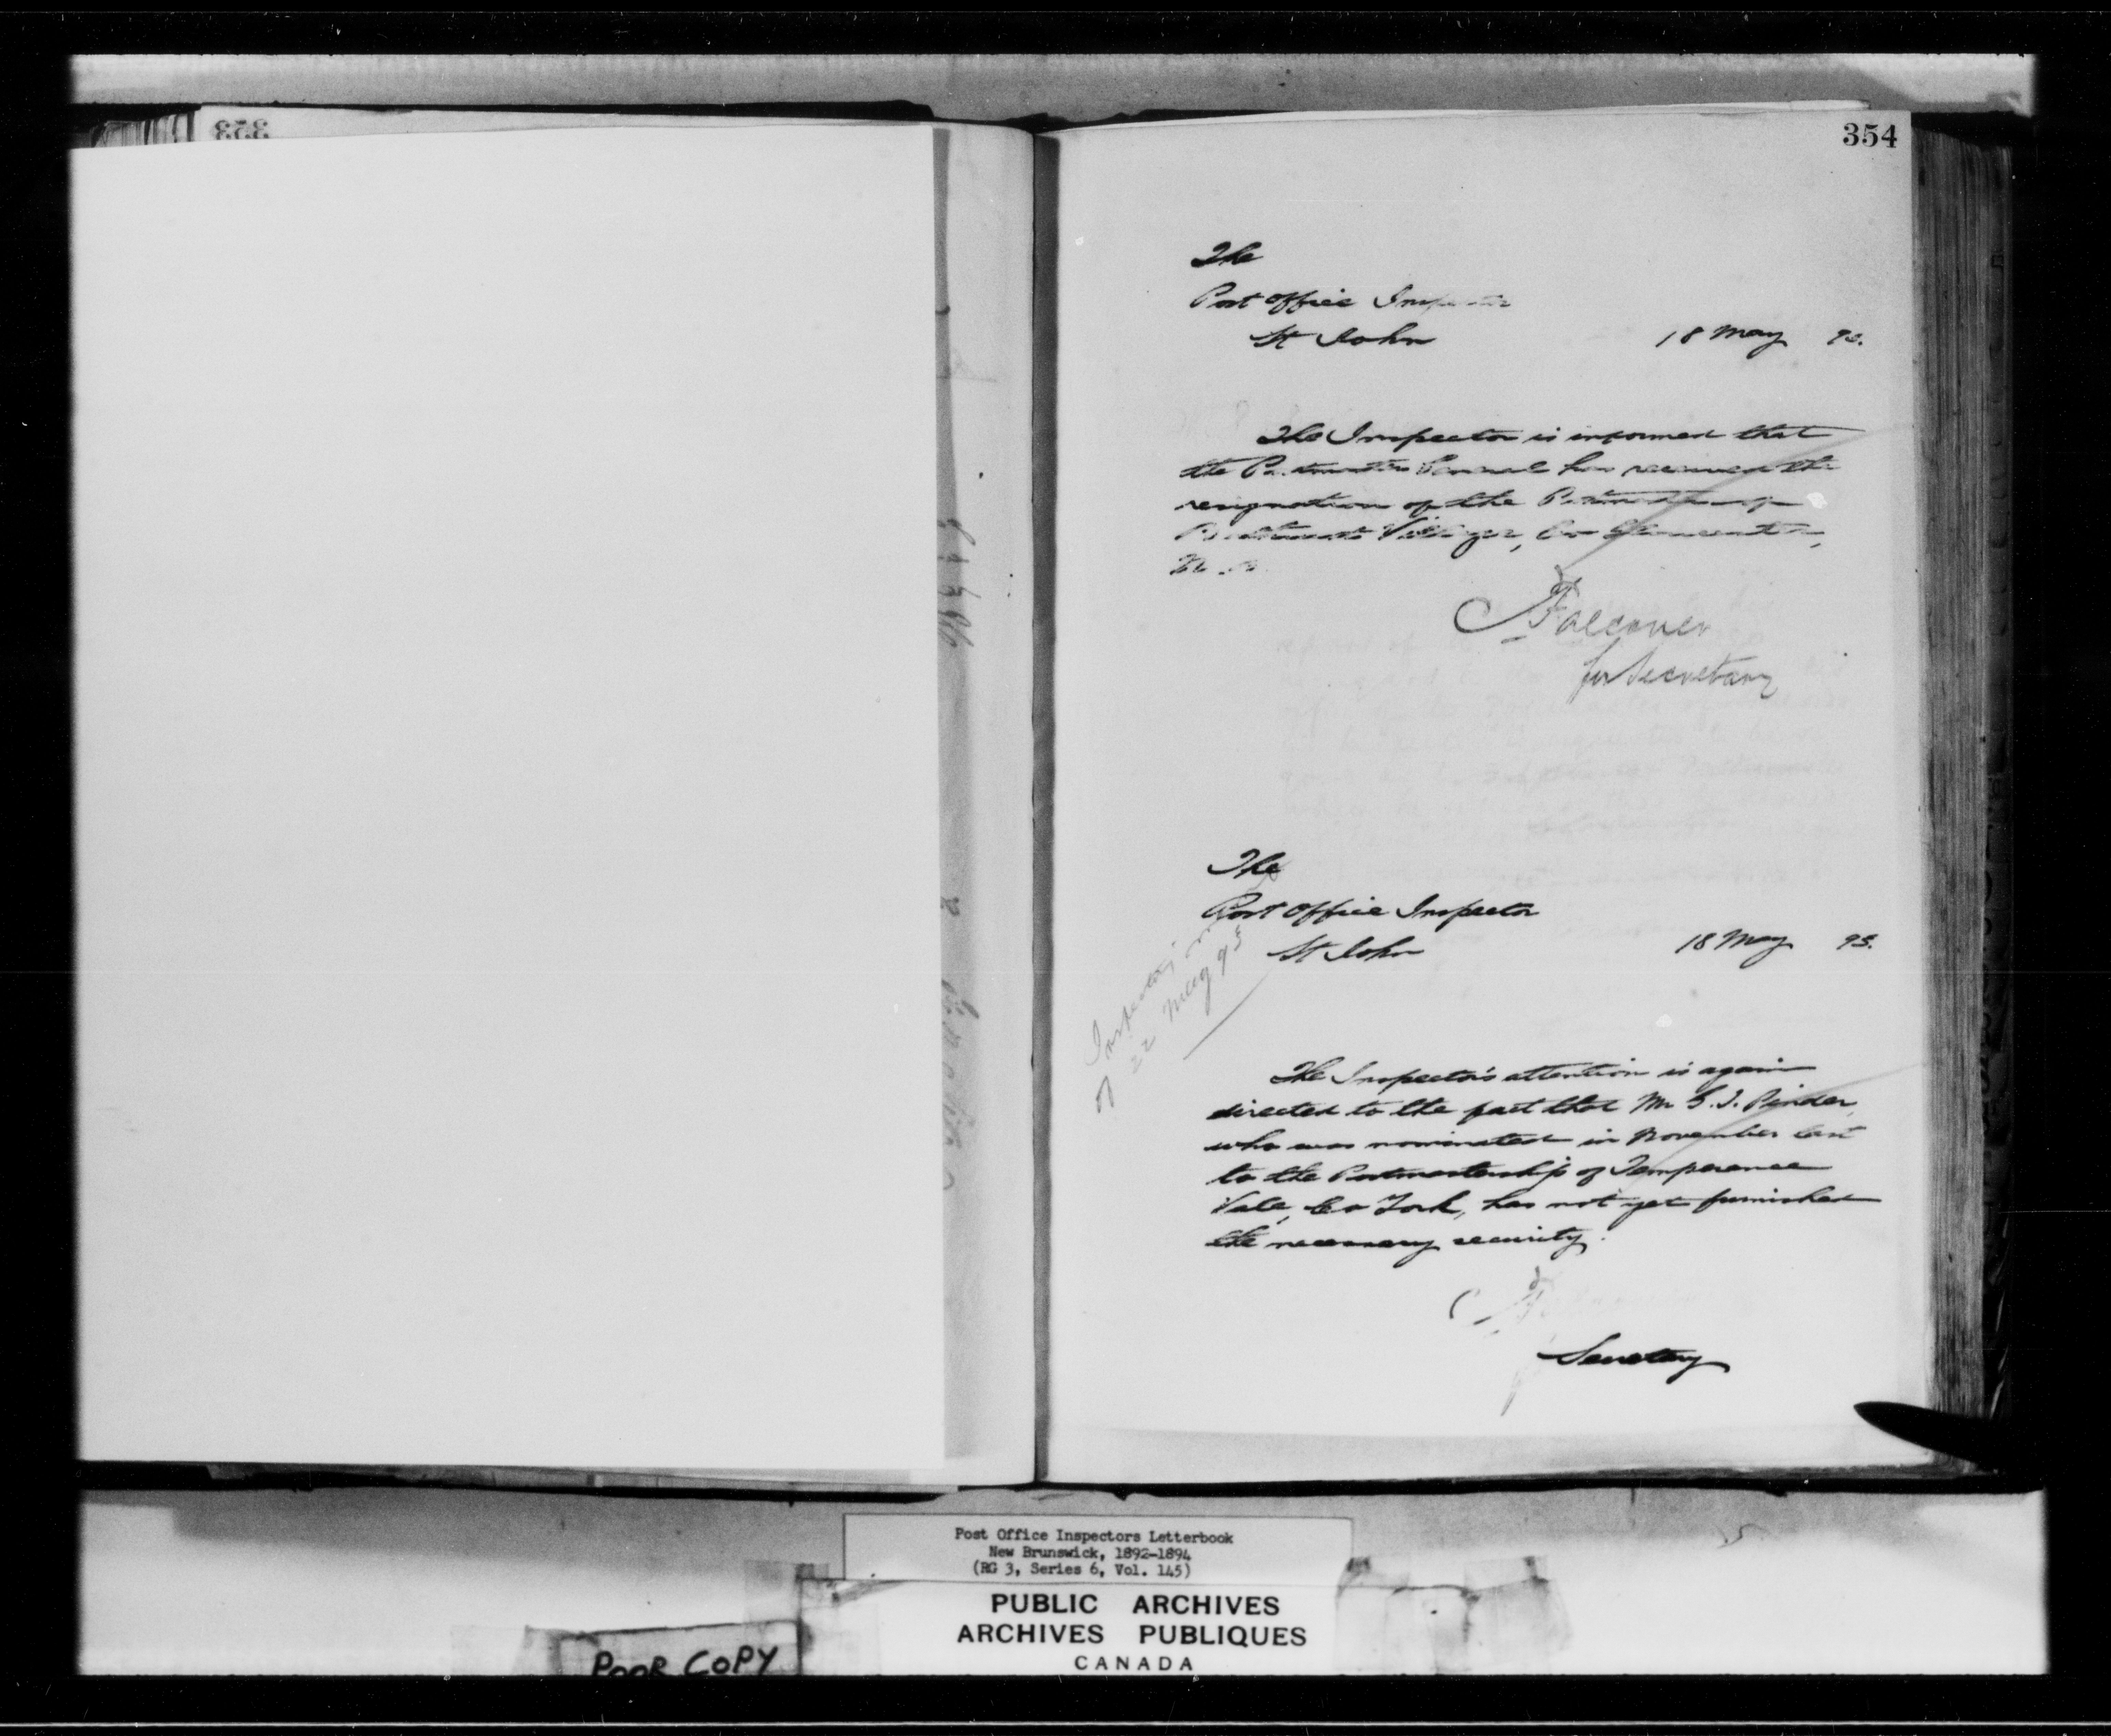 353
354
The
Post Office Inspector
St John 18 May 93.
The Inspector is informed that
the Postmaster General has received the
resignation of the Postmaster of
Village, Co Gloucester,
N.B.
Falconer
for Secretary
The
Post Office Inspector
St John 18 May 93.
Inspector's
of 22 May 93
The Inspector's attention is again
directed to the fact that Mr G. I. Pinder,
who was nominated in November last
to the Postmastership of Temperance
Vale, Co York, has not yet furnished
the necessary security.
Secretary
Post Office Inspectors Letterbook
New Brunswick, 1892-1894
(RG 3, Series 6, Vol. 145)
PUBLIC ARCHIVES
ARCHIVES PUBLIQUES
CANADA
POOR COPY